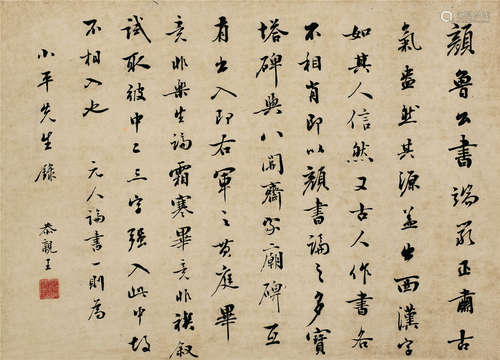 顏魯公書端嚴正肅古
氣盎然其源並出西漢字
如其人信然又古人作書各
不相肖即以顏書論之多寶
塔碑與八關齋家廟碑互
有出入即右軍之黃庭畢
竟非樂生論霜寒畢竟非禊叙
試取彼中二三字強入此中故
不相入也 元人論書一則為
小平先生錄 恭親王